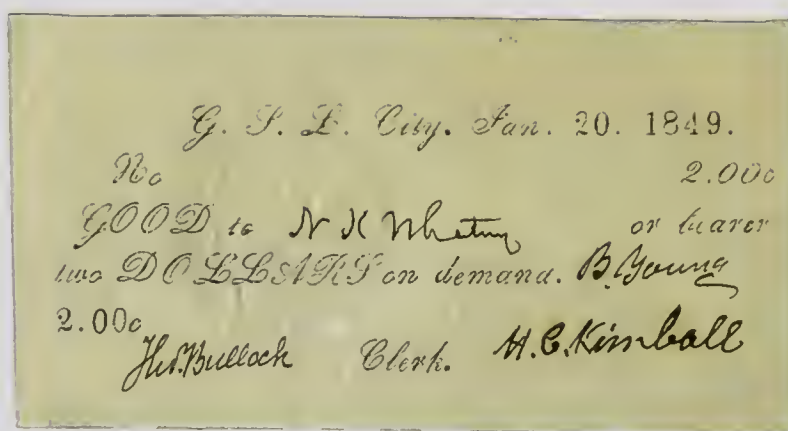 G. S. L. City. Jan. 20. 1849.
No 2.00c
GOOD to N K Whitney or bearer
two DOLLARS on demand. B. Young
2.00c
Tho.s Bullock Clerk. H. C. Kimball